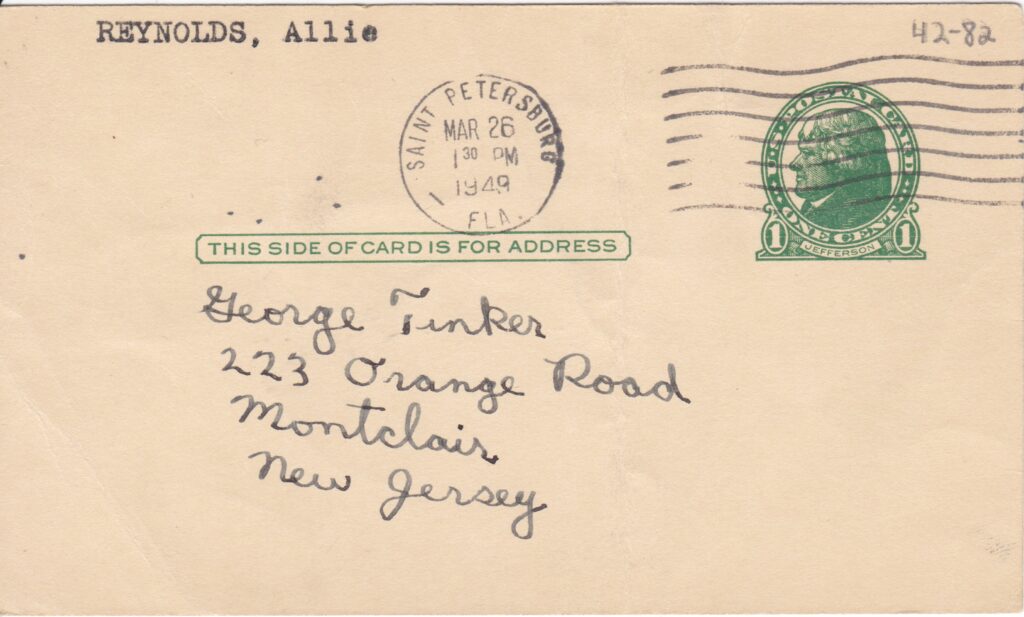 REYNOLDS, Allie
42-82
SAINT PETERSBURG
MAR 26
1 30 PM
1949
FLA.
1
U.S. POSTAL CARD
ONE CENT
1 JEFFERSON 1
THIS SIDE OF CARD IS FOR ADDRESS
George Tinker
223 Orange Road
Montclair
New Jersey